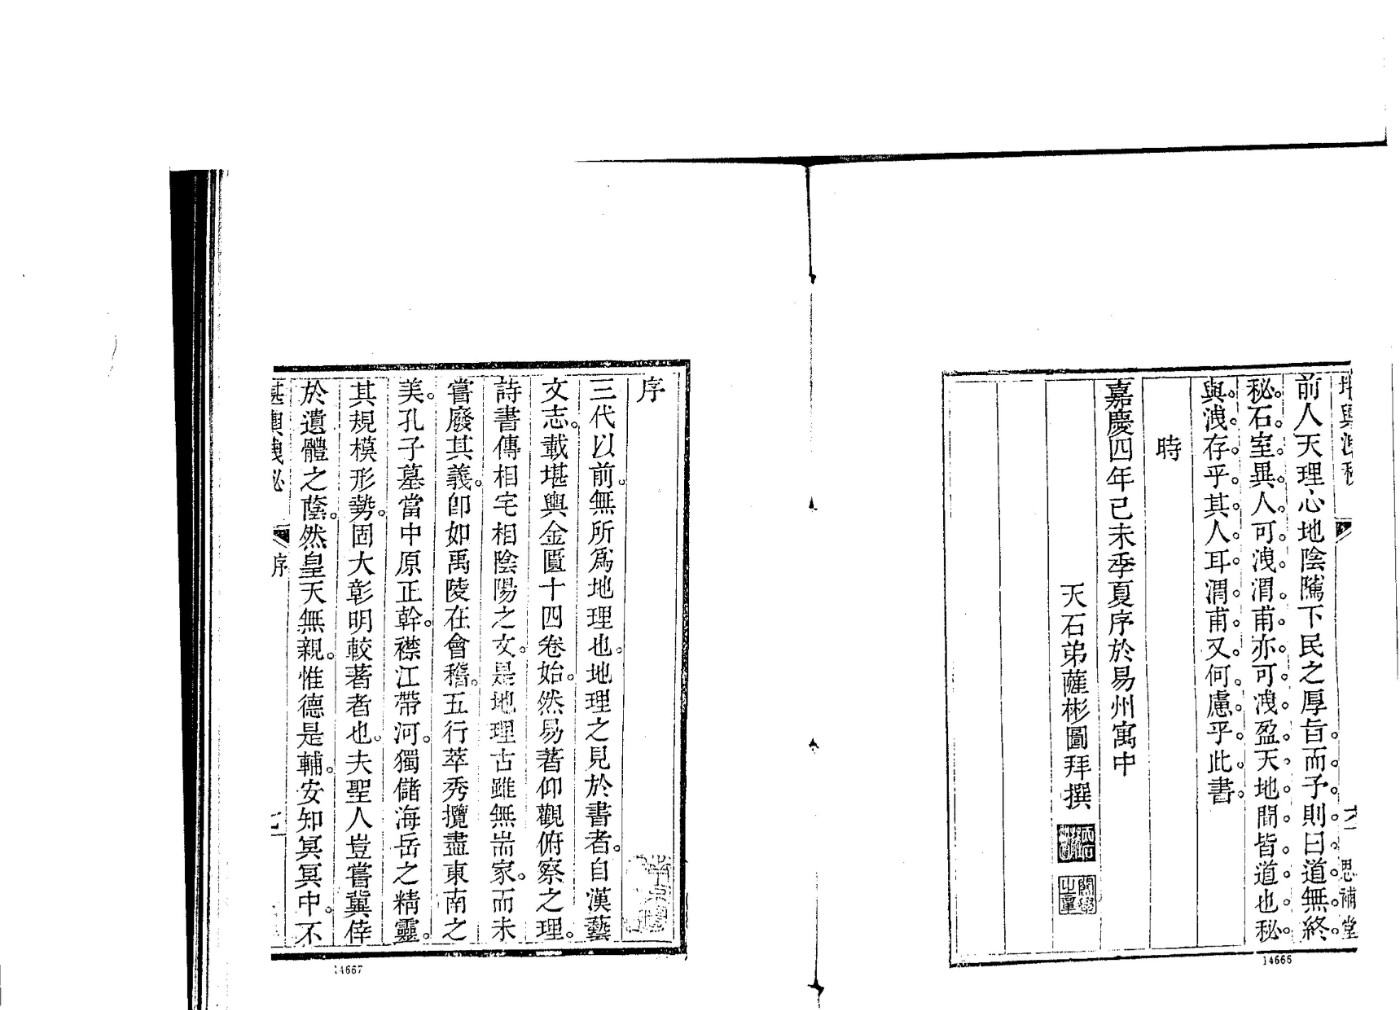 堪輿洩秘
六
思補堂
前人天理心地陰隲下民之厚旨。而予則曰。道無終。
秘。石室異人可洩。渭甫亦可洩。盈天地間皆道也。秘。
與。洩。存。乎。其。人。耳。渭。甫。又。何。慮。乎。此。書。
時
嘉慶四年己未季夏序於易州寓中
天石弟薩彬圖拜撰
14666
序
三代以前。無所爲地理也。地理之見於書者。自漢藝
文志。載堪輿金匱十四卷始。然易著仰觀俯察之理。
詩書傳相宅相陰陽之文。是地理古雖無耑家。而未
嘗廢其義。卽如禹陵在會稽。五行萃秀。攬盡東南之
美。孔子墓當中原正幹。襟江帶河。獨儲海岳之精靈。
其規模形勢。固大彰明較著者也。夫聖人豈嘗冀倖
於遺體之蔭。然皇天無親。惟德是輔。安知冥冥中。不
堪輿洩秘
序
七
14667